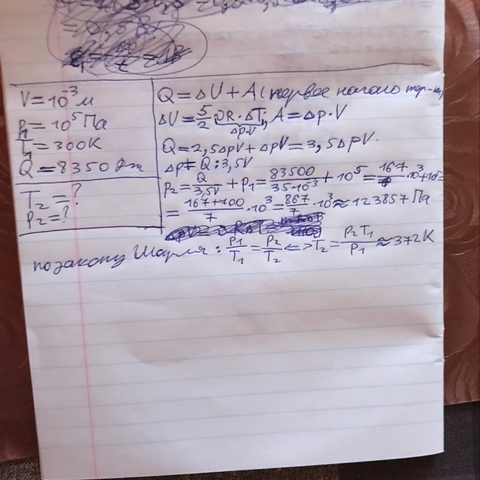 V = 10⁻³ м
p₁ = 10⁵ Па
T₁ = 300K
Q = 8350 Дж
T₂ = ?
p₂ = ?
Q = ΔU + A (первое начало тер-ки)
ΔU = 5/2 νR·ΔT; A = Δp·V
Δp·V
Q = 2,5ΔpV + ΔpV = 3,5ΔpV
Δp = Q : 3,5V
p₂ = Q/3,5V + p₁ = 83500/35·10³ + 10⁵ = 167/7·10³+10⁵=
= 167+700/7 ·10³ = 867/7 ·10³ ≈ 123857 Па
по закону Шарля : p₁/T₁ = p₂/T₂ <=> T₂ = p₂T₁/p₁ ≈ 372K